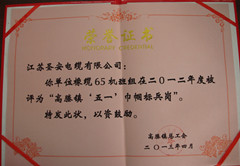 荣誉证书
江苏圣安电缆有限公司：
你单位橡缆65机班组在二〇一二年度被
评为“高塍镇‘五一’巾帼标兵岗”。
特发此状，以资鼓励。
高塍镇总工会
二〇一三年四月